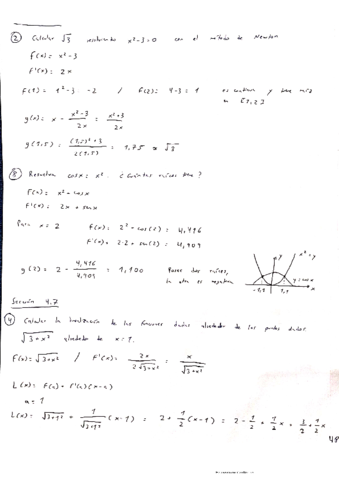 ② Calcular √3 resolviendo x²-3=0 con el método de Newton
f(x)= x²-3
f'(x)= 2x
f(1)= 1²-3 = -2 / f(2)= 4-3=1 es continua y tiene raíz en [1,2]
g(x)= x - x²-3 / 2x = x²+3 / 2x
g(1,5)= (1,5)²+3 / 2(1,5) = 1,75 ≈ √3
⑧ Resuelva cosx = x². ¿Cuántas raíces tiene?
f(x)= x²-cosx
f'(x)= 2x + senx
Para x=2 f(2)= 2²-cos(2)= 4,416
f'(x)= 2·2+sen(2)= 4,909
g(2)= 2 - 4,416 / 4,909 = 1,100 Posee dos raíces, la otra es negativa
y x²=y
y=cosx
-1,1 1,1 x
Sección 4.7
④ Calcular la linealización de las funciones dadas alrededor de los puntos dados
√3+x² alrededor de x=1.
f(x)= √3+x² / f'(x)= 2x / 2√3+x² = x / √3+x²
L(x)= f(a)+f'(a)(x-a)
a=1
L(x)= √3+1² + 1 / √3+1² (x-1) = 2+ 1/2 (x-1) = 2 - 1/2 + 1/2 x = 3/2 + 1/2 x